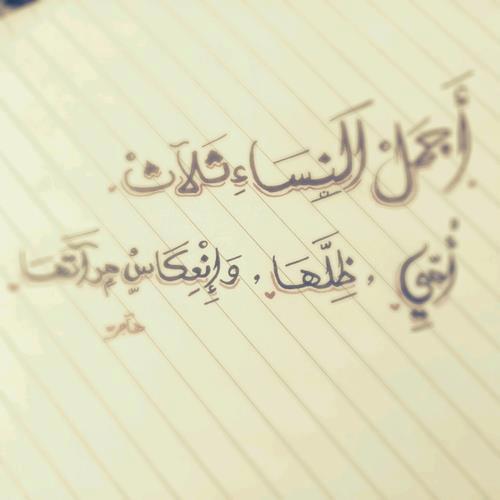 أَجمَلْ النِسَاءِ ثَلآثْ
أُمّيِ , ظِلَّهَا , وَإِنْعِكَاسٌ مِرآتَهَا